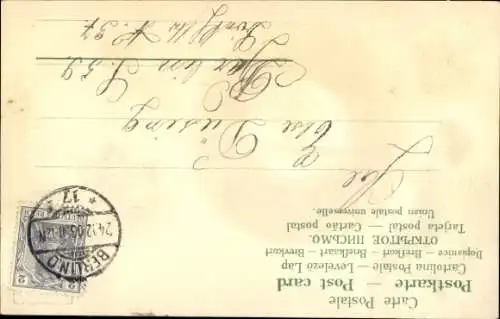 Carte Postale
Postkarte — Post card
Cartolina Postale — Levelező Lap
Dopisnice — Brefkort — Briefkaart — Brevkort
ОТКРЫТОЕ ПИСЬМО.
Tarjeta postal — Cartão postal
Union postale universelle.
Else Düsing
Berlin S. 59.
BERLIN O
24.12.05.
* 17 *
2 2